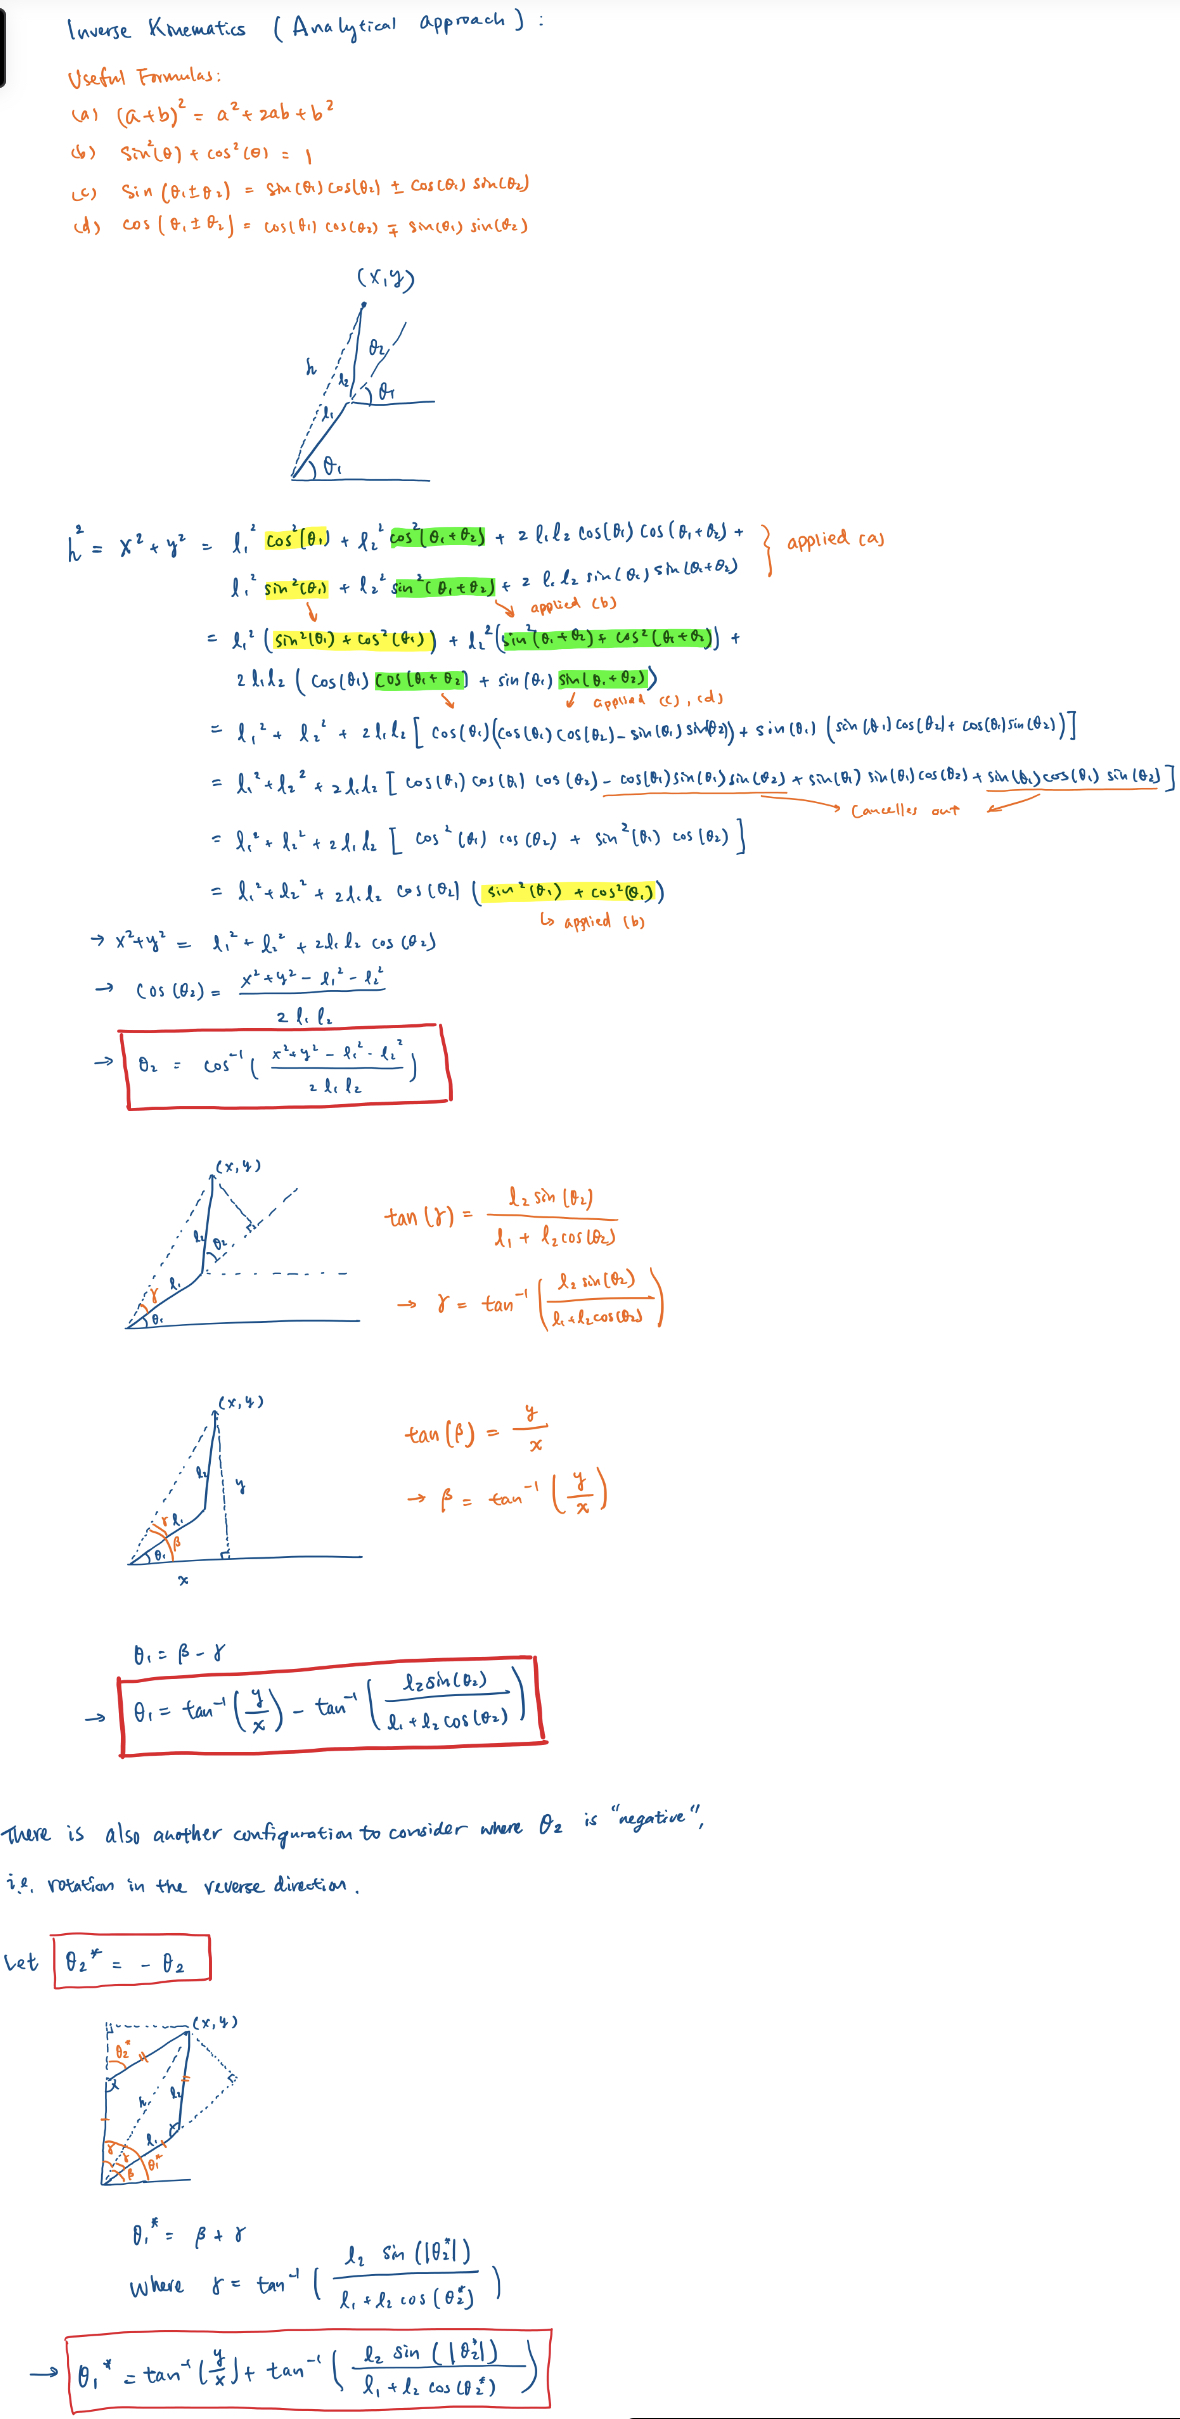 Inverse Kinematics (Analytical approach) :
Useful Formulas:
(a) (a+b)² = a² + 2ab + b²
(b) sin²(θ) + cos²(θ) = 1
(c) sin (θ₁±θ₂) = sin(θ₁) cos(θ₂) ± cos(θ₁) sin(θ₂)
(d) cos (θ₁ ± θ₂) = cos(θ₁) cos(θ₂) ∓ sin(θ₁) sin(θ₂)
(x,y)
θ₂
h
l₂
θ₁
l₁
θ₁
h² = x² + y² = l₁² cos²(θ₁) + l₂² cos²(θ₁+θ₂) + 2 l₁l₂ cos(θ₁) cos (θ₁+θ₂) +
} applied (a)
l₁² sin²(θ₁) + l₂² sin²(θ₁+θ₂) + 2 l₁l₂ sin(θ₁) sin(θ₁+θ₂)
applied (b)
= l₁² (sin²(θ₁) + cos²(θ₁)) + l₂² (sin²(θ₁+θ₂) + cos²(θ₁+θ₂)) +
2 l₁l₂ ( cos(θ₁) cos(θ₁+θ₂) + sin(θ₁) sin(θ₁+θ₂))
applied (c), (d)
= l₁² + l₂² + 2l₁l₂ [ cos(θ₁)(cos(θ₁) cos(θ₂) - sin(θ₁) sin(θ₂)) + sin(θ₁) (sin(θ₁) cos(θ₂) + cos(θ₁) sin(θ₂))]
= l₁² + l₂² + 2l₁l₂ [ cos(θ₁) cos(θ₁) cos(θ₂) - cos(θ₁) sin(θ₁) sin(θ₂) + sin(θ₁) sin(θ₁) cos(θ₂) + sin(θ₁) cos(θ₁) sin(θ₂)]
→ Cancelles out
= l₁² + l₂² + 2l₁l₂ [ cos²(θ₁) cos(θ₂) + sin²(θ₁) cos(θ₂) ]
= l₁² + l₂² + 2l₁l₂ cos(θ₂) (sin²(θ₁) + cos²(θ₁))
↳ applied (b)
→ x²+y² = l₁² + l₂² + 2l₁l₂ cos(θ₂)
→ cos(θ₂) = (x² + y² - l₁² - l₂²) / (2 l₁ l₂)
→ θ₂ = cos⁻¹ ( (x²+y² - l₁² - l₂²) / (2 l₁ l₂) )
(x, y)
l₂
θ₂
γ
l₁
θ₁
tan(γ) = (l₂ sin(θ₂)) / (l₁ + l₂ cos(θ₂))
→ γ = tan⁻¹ ( (l₂ sin(θ₂)) / (l₁ + l₂ cos(θ₂)) )
(x, y)
l₂
y
γ
l₁
β
θ₁
x
tan(β) = y / x
→ β = tan⁻¹ ( y / x )
θ₁ = β - γ
→ θ₁ = tan⁻¹ ( y / x ) - tan⁻¹ ( (l₂ sin(θ₂)) / (l₁ + l₂ cos(θ₂)) )
There is also another configuration to consider where θ₂ is "negative",
i.e. rotation in the reverse direction.
Let θ₂* = - θ₂
(x, y)
θ₂*
h
l₂
l₁
γ
γ
β
θ₁*
θ₁* = β + γ
where γ = tan⁻¹ ( (l₂ sin(|θ₂*|)) / (l₁ + l₂ cos(θ₂*)) )
→ θ₁* = tan⁻¹ ( y / x ) + tan⁻¹ ( (l₂ sin(|θ₂*|)) / (l₁ + l₂ cos(θ₂*)) )